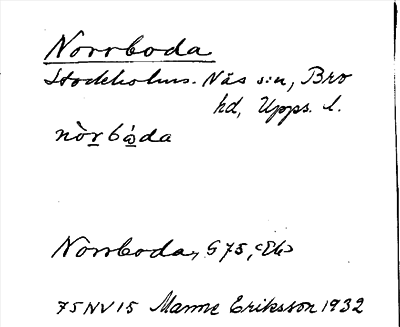 Norrboda
Stockholms-Näs s:n, Bro
hd, Upps. l.
nòr bóda
Norrboda, G 75, <Ek>
75NV15 Manne Eriksson 1932